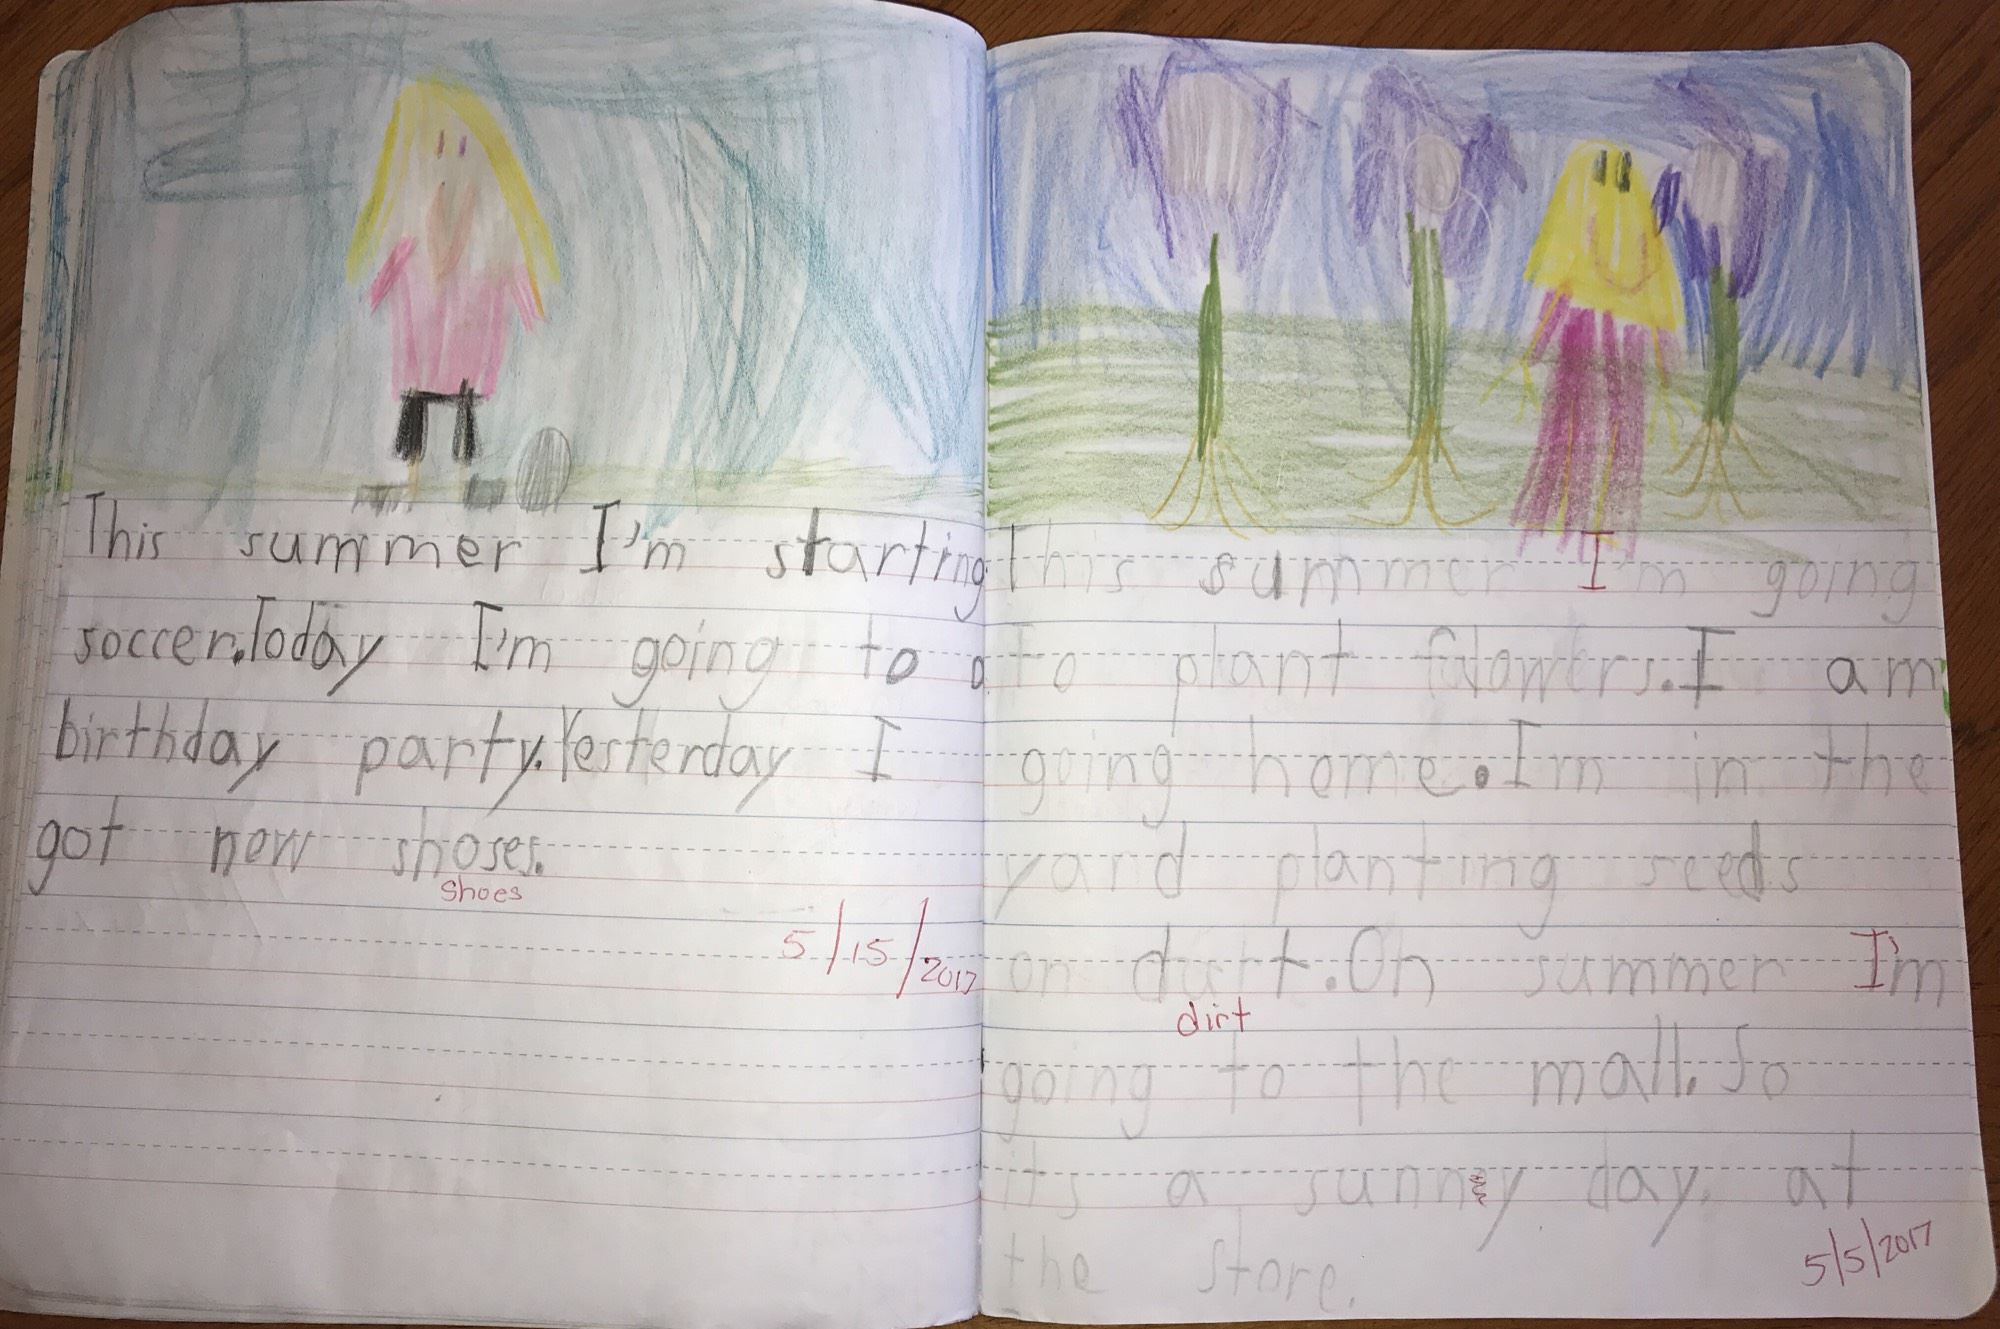 This summer I'm starting
soccer.Today I'm going to a
birthday party.Yesterday I
got new shoses.
shoes
5/15/2017
This summer I'm going
to plant flowers.I am
going home.Im in the
yard planting seeds
on durt.On summer I'm
dirt
going to the mall.So
its a sunny day. at
the store.
5/5/2017